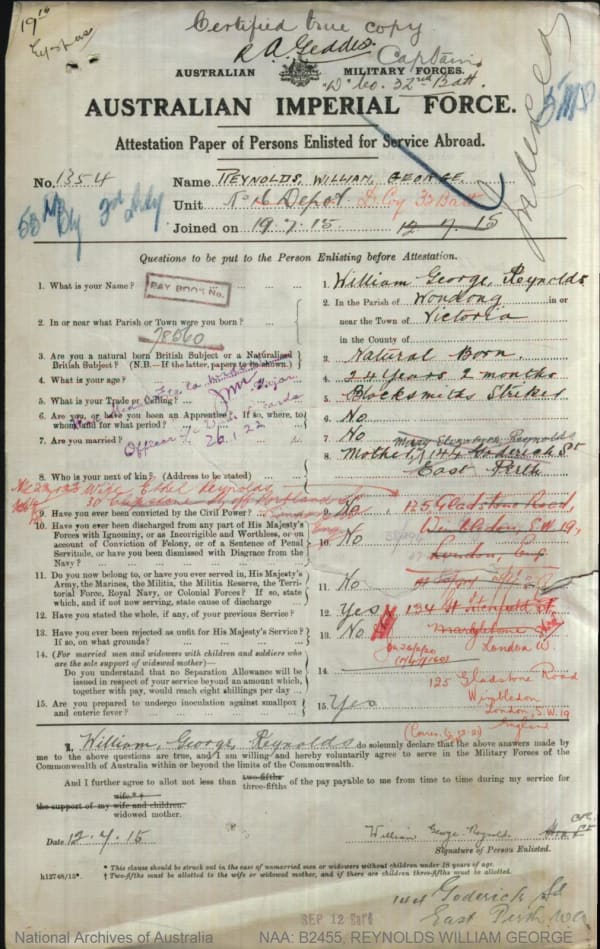 19
Certified true copy
R A Geddes.
Captain
AUSTRALIAN MILITARY FORCES.
"D" Co. 32nd Batt.
AUSTRALIAN IMPERIAL FORCE.
Attestation Paper of Persons Enlisted for Service Abroad.
Indexed
No. 1354 Name REYNOLDS, WILLIAM, GEORGE.
Unit No 6 Depot D. Coy 32 Batt
Joined on 19.7.15. 12 7 15
Questions to be put to the Person Enlisting before Attestation.
1. What is your Name? 1. William George, Reynolds
PAY BOOK No.
78560
2. In or near what Parish or Town were you born? 2. In the Parish of Wondong in or
near the Town of Victoria
in the County of
3. Are you a natural born British Subject or a Naturalised
British Subject? (N.B.—If the latter, papers to be shown.) 3. Natural Born.
4. What is your age? 4. 24 years 2 months
5. What is your Trade or Calling? 5. Blacksmiths Striker
6. Are you, or have you been an Apprentice? If so, where, to
whom, and for what period? 6. No
7. Are you married? 7. No
26.1.22
8. Who is your next of kin? (Address to be stated) 8. Mary Elizabeth Reynolds
Mother, 144 Goderich St
East Perth
Wife Ethel Reynolds
9. Have you ever been convicted by the Civil Power? 9. No 125 Gladstone Road,
Wimbledon, S.W. 19,
London, Eng
10. Have you ever been discharged from any part of His Majesty's
Forces with Ignominy, or as Incorrigible and Worthless, or on
account of Conviction of Felony, or of a Sentence of Penal
Servitude, or have you been dismissed with Disgrace from the
Navy? 10. No
11. Do you now belong to, or have you ever served in, His Majesty's
Army, the Marines, the Militia, the Militia Reserve, the Terri-
torial Force, Royal Navy, or Colonial Forces? If so, state
which, and if not now serving, state cause of discharge 11. No
12. Have you stated the whole, if any, of your previous Service? 12. Yes
13. Have you ever been rejected as unfit for His Majesty's Service?
If so, on what grounds? 13. No
Marylebone
London W.
14. (For married men and widowers with children and soldiers who
are the sole support of widowed mother)—
Do you understand that no Separation Allowance will be
issued in respect of your service beyond an amount which,
together with pay, would reach eight shillings per day 14.
125 Gladstone Road
Wimbledon
London, S.W. 19
England
15. Are you prepared to undergo inoculation against smallpox
and enteric fever? 15. Yes
I, William, George, Reynolds do solemnly declare that the above answers made by
me to the above questions are true, and I am willing and hereby voluntarily agree to serve in the Military Forces of the
Commonwealth of Australia within or beyond the limits of the Commonwealth.
And I further agree to allot not less than two-fifths
three-fifths of the pay payable to me from time to time during my service for
wife * †
the support of my wife and children.
widowed mother.
Date 12.7.15 William George Reynolds
Signature of Person Enlisted.
* This clause should be struck out in the case of unmarried men or widowers without children under 18 years of age.
h12748/15*. † Two-fifths must be allotted to the wife or widowed mother, and if there are children three-fifths must be allotted.
144 Goderick St
East Perth WA
SEP 12
National Archives of Australia NAA: B2455, REYNOLDS WILLIAM GEORGE